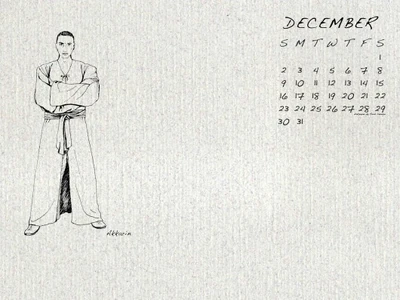 DECEMBER
S M T W T F S
1
2 3 4 5 6 7 8
9 10 11 12 13 14 15
16 17 18 19 20 21 22
23 24 25 26 27 28 29
30 31